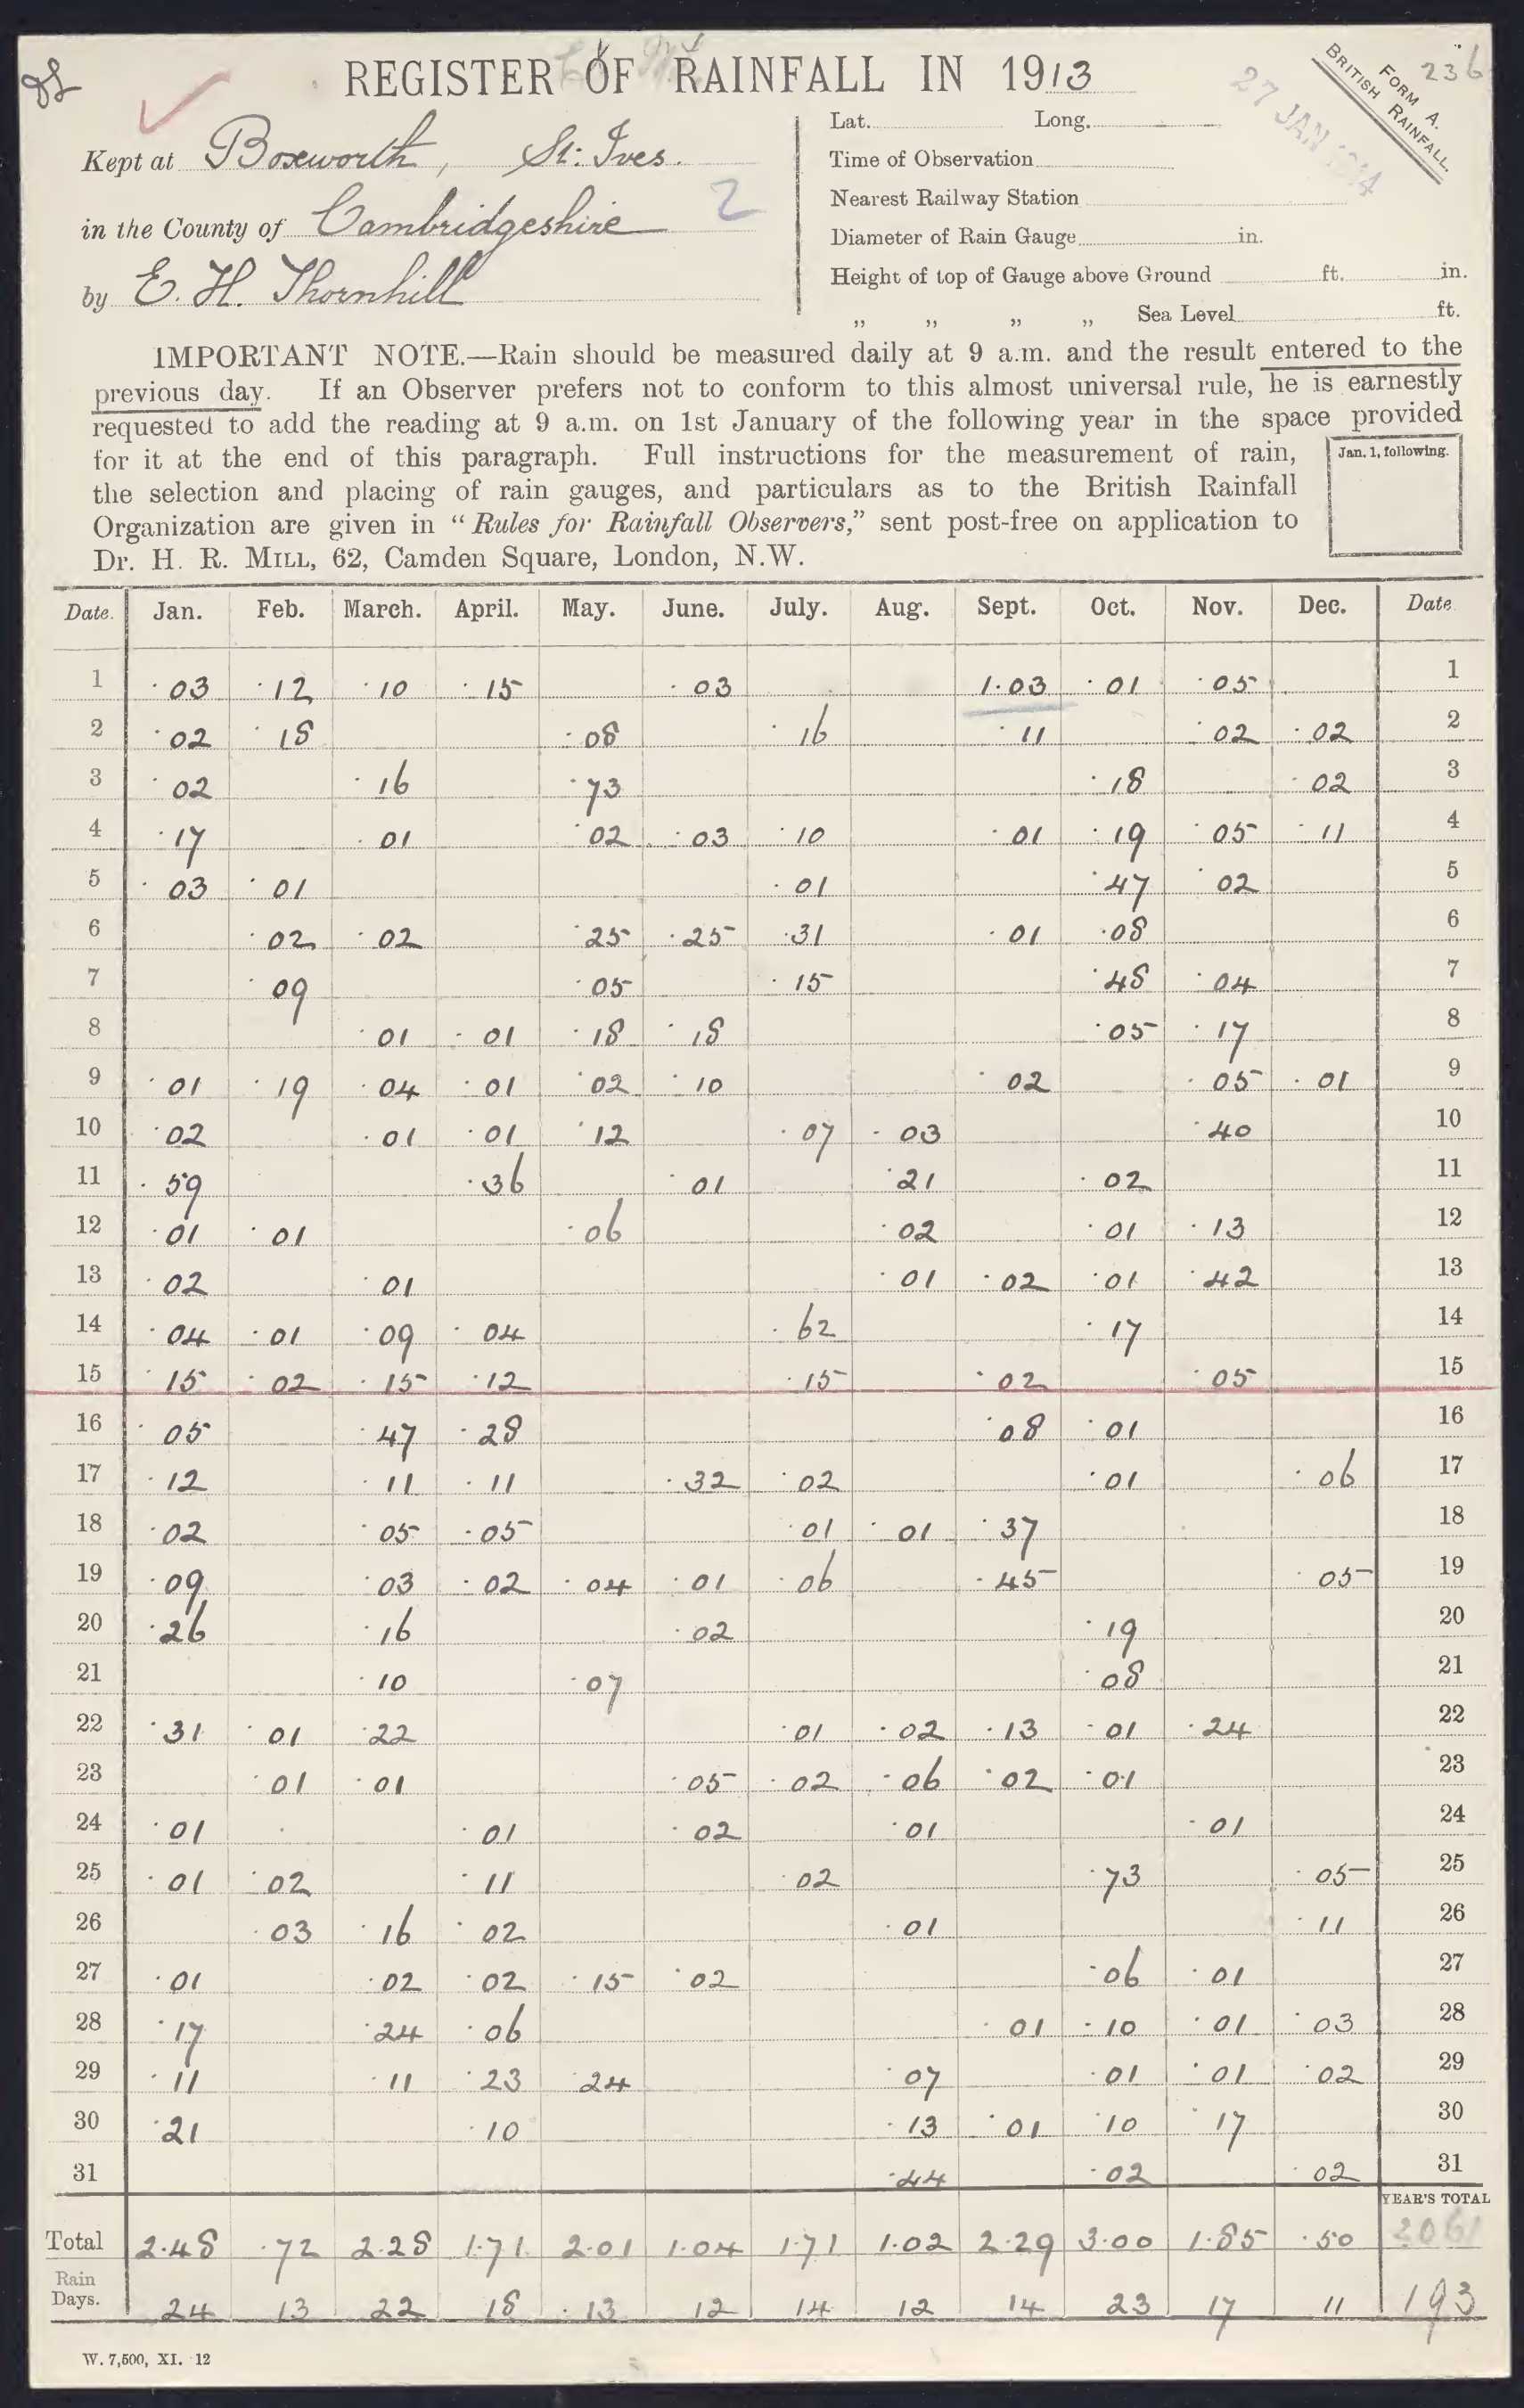 REGISTER OF RAINFALL IN 1913
236
FORM A.
BRITISH RAINFALL.
27 JAN 1914
Kept at Boxworth, St: Ives.
in the County of Cambridgeshire 2
by E. H. Thornhill
Lat. Long.
Time of Observation
Nearest Railway Station
Diameter of Rain Gauge in.
Height of top of Gauge above Ground ft. in.
„ „ „ „ Sea Level ft.
IMPORTANT NOTE.—Rain should be measured daily at 9 a.m. and the result entered to the
previous day. If an Observer prefers not to conform to this almost universal rule, he is earnestly
requested to add the reading at 9 a.m. on 1st January of the following year in the space provided
for it at the end of this paragraph. Full instructions for the measurement of rain,
the selection and placing of rain gauges, and particulars as to the British Rainfall
Organization are given in “Rules for Rainfall Observers,” sent post-free on application to
Dr. H. R. MILL, 62, Camden Square, London, N.W.
Jan. 1, following.
Date. Jan. Feb. March. April. May. June. July. Aug. Sept. Oct. Nov. Dec. Date
1 ·03 ·12 ·10 ·15 ·03 1·03 ·01 ·05 1
2 ·02 ·18 ·08 ·16 ·11 ·02 ·02 2
3 ·02 ·16 ·73 ·18 ·02 3
4 ·17 ·01 ·02 ·03 ·10 ·01 ·19 ·05 ·11 4
5 ·03 ·01 ·01 ·47 ·02 5
6 ·02 ·02 ·25 ·25 ·31 ·01 ·08 6
7 ·09 ·05 ·15 ·48 ·04 7
8 ·01 ·01 ·18 ·18 ·05 ·17 8
9 ·01 ·19 ·04 ·01 ·02 ·10 ·02 ·05 ·01 9
10 ·02 ·01 ·01 ·12 ·07 ·03 ·40 10
11 ·59 ·36 ·01 ·21 ·02 11
12 ·01 ·01 ·06 ·02 ·01 ·13 12
13 ·02 ·01 ·01 ·02 ·01 ·42 13
14 ·04 ·01 ·09 ·04 ·62 ·17 14
15 ·15 ·02 ·15 ·12 ·15 ·02 ·05 15
16 ·05 ·47 ·28 ·08 ·01 16
17 ·12 ·11 ·11 ·32 ·02 ·01 ·06 17
18 ·02 ·05 ·05 ·01 ·01 ·37 18
19 ·09 ·03 ·02 ·04 ·01 ·06 ·45 ·05 19
20 ·26 ·16 ·02 ·19 20
21 ·10 ·07 ·08 21
22 ·31 ·01 ·22 ·01 ·02 ·13 ·01 ·24 22
23 ·01 ·01 ·05 ·02 ·06 ·02 ·01 23
24 ·01 ·01 ·02 ·01 ·01 24
25 ·01 ·02 ·11 ·02 ·73 ·05 25
26 ·03 ·16 ·02 ·01 ·11 26
27 ·01 ·02 ·02 ·15 ·02 ·06 ·01 27
28 ·17 ·24 ·06 ·01 ·10 ·01 ·03 28
29 ·11 ·11 ·23 ·24 ·07 ·01 ·01 ·02 29
30 ·21 ·10 ·13 ·01 ·10 ·17 30
31 ·44 ·02 ·02 31
YEAR'S TOTAL
Total 2·48 ·72 2·28 1·71 2·01 1·04 1·71 1·02 2·29 3·00 1·85 ·50 2061
Rain Days. 24 13 22 18 13 12 14 12 14 23 17 11 193
W. 7,500, XI. 12